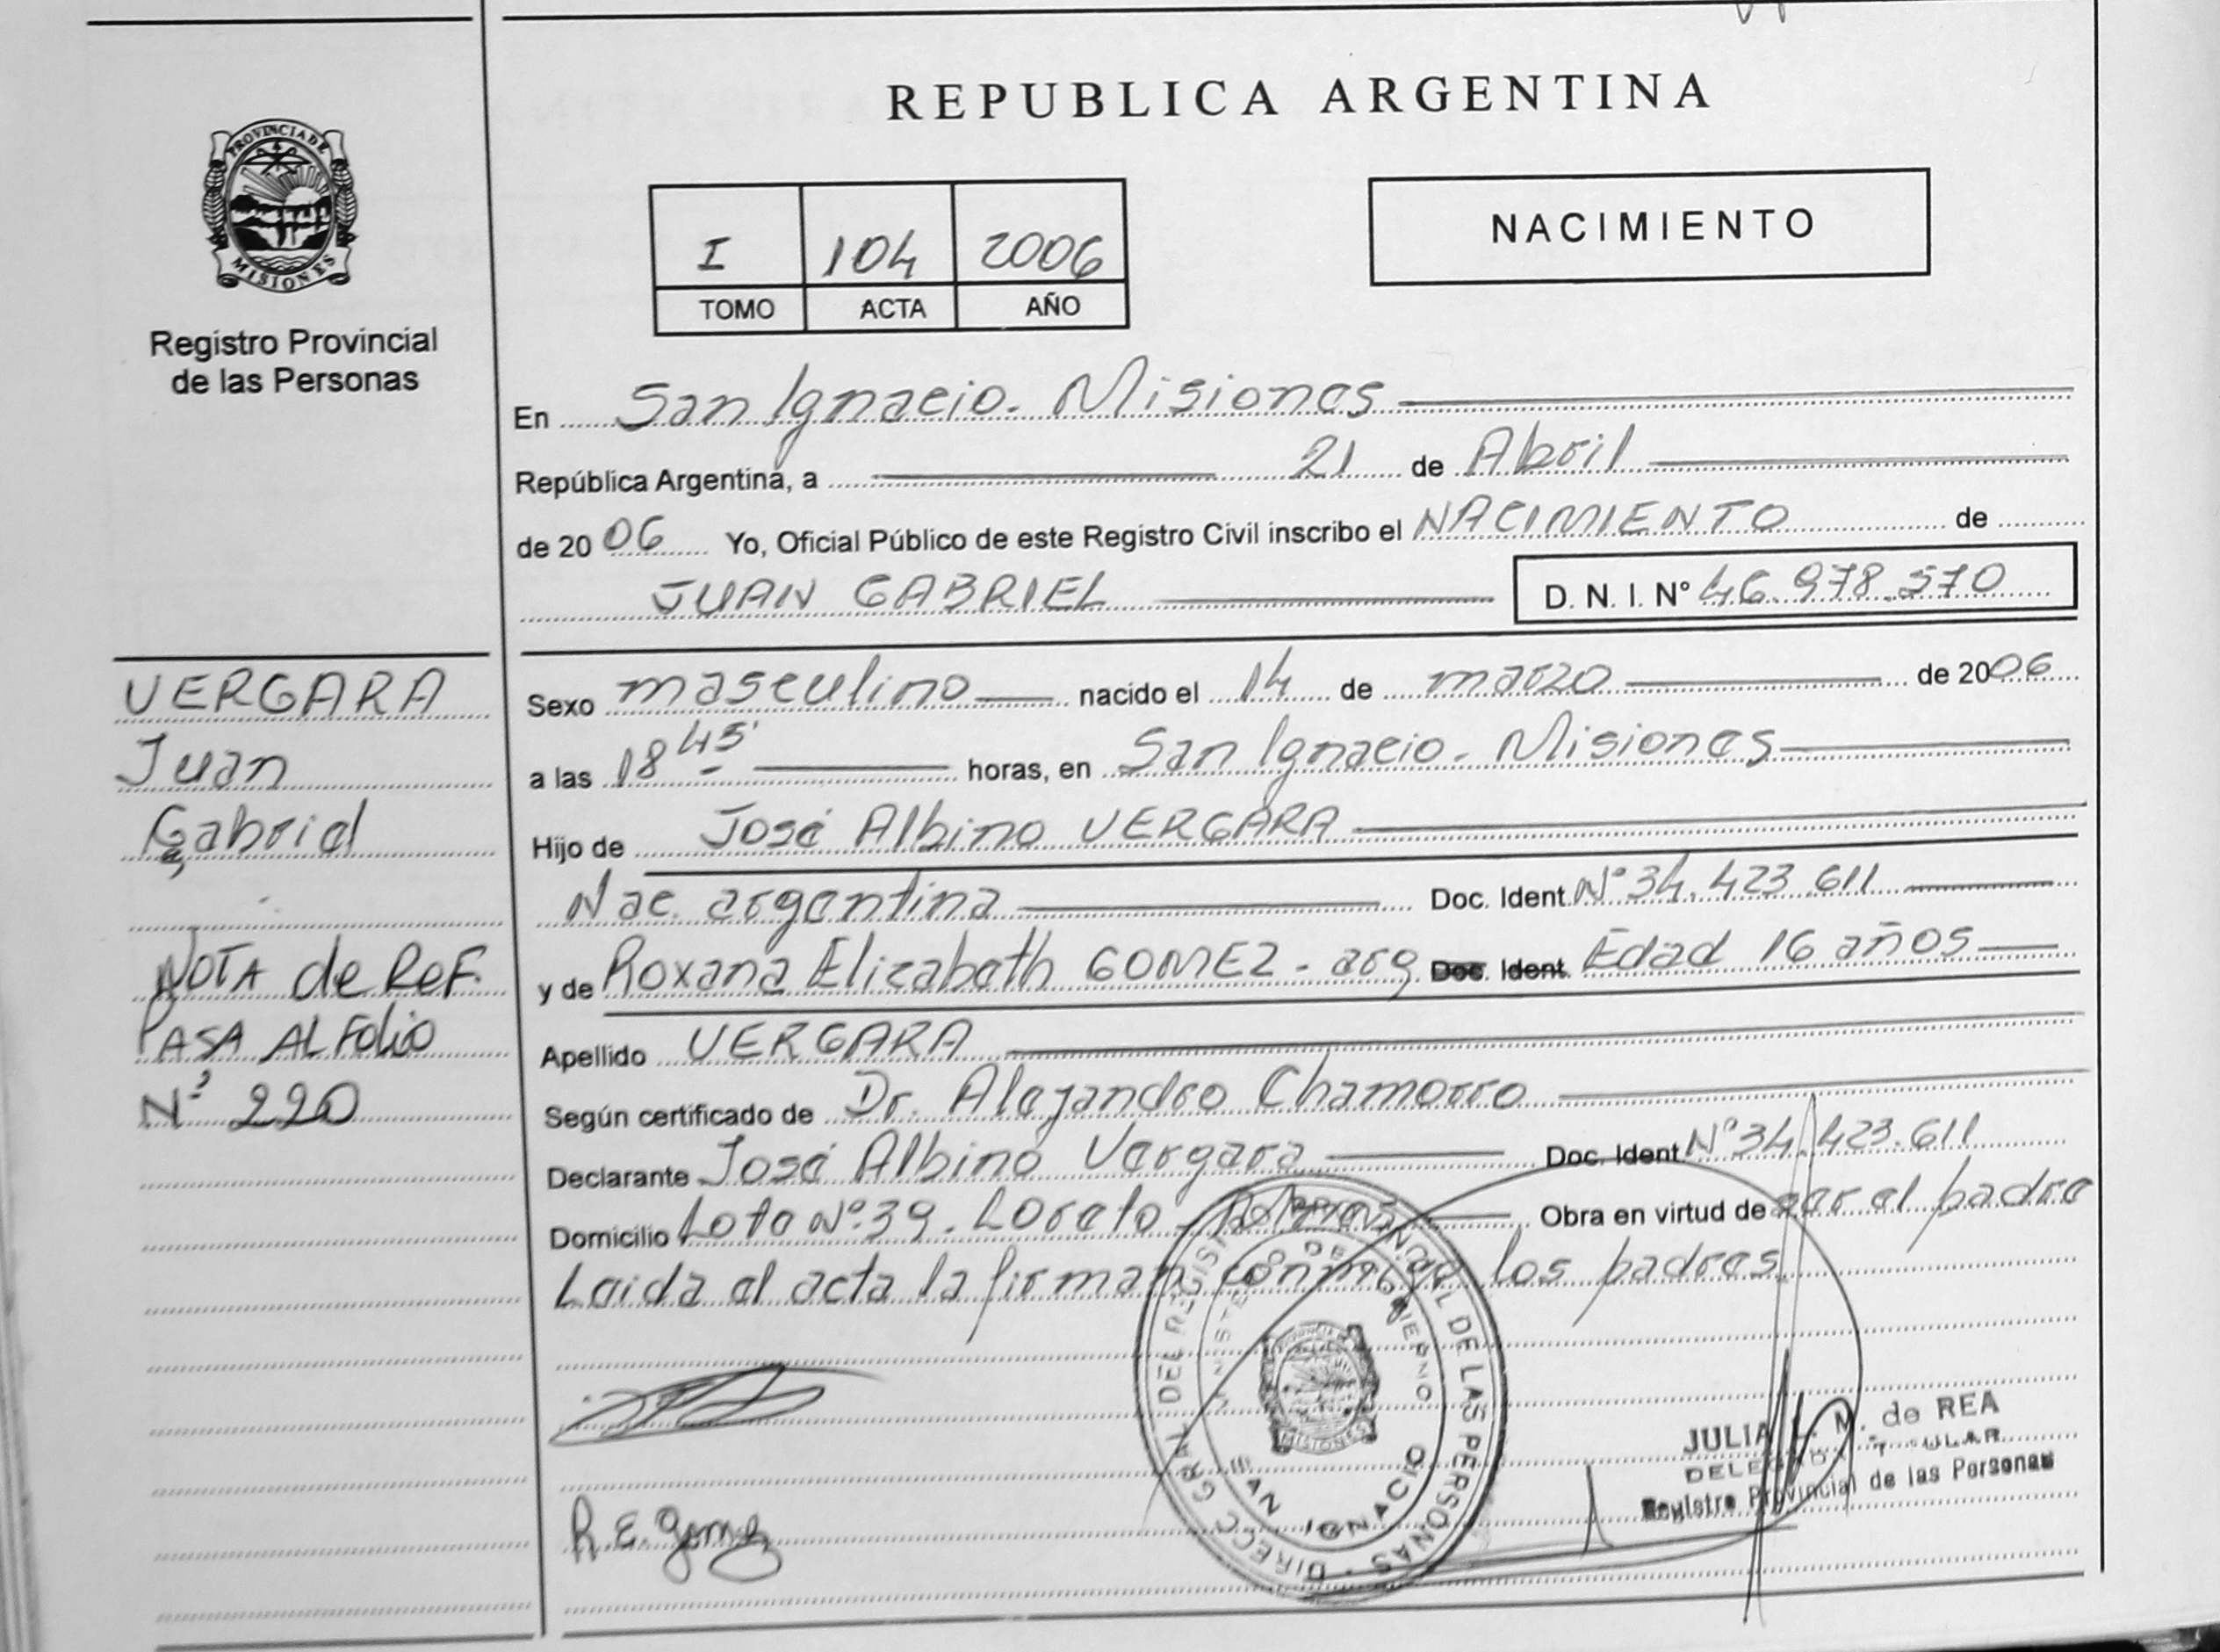 REPUBLICA ARGENTINA
PROVINCIA DE
MISIONES
Registro Provincial
de las Personas
I 104 2006
TOMO ACTA AÑO
NACIMIENTO
En San Ignacio. Misiones
República Argentina, a 21 de Abril
de 2006 Yo, Oficial Público de este Registro Civil inscribo el NACIMIENTO de
JUAN GABRIEL D. N. I. Nº 46.978.570
VERGARA
Juan
Gabriel
NOTA de REF.
PASA AL FOLIO
Nº 220
Sexo masculino nacido el 14 de marzo de 2006
a las 18 45' horas, en San Ignacio. Misiones
Hijo de José Albino VERGARA
Nac. argentina Doc. Ident. Nº 34.423.611
y de Roxana Elizabeth GOMEZ - arg Doc. Ident. Edad 16 años
Apellido VERGARA
Según certificado de Dr. Alejandro Chamorro
Declarante José Albino Vergara Doc. Ident. Nº 34.423.611
Domicilio Lote Nº 39. Loreto Obra en virtud de ser el padre
Leida el acta la firman conmigo los padres.
DIRECC. GRAL. DEL REGISTRO PROVINCIAL DE LAS PERSONAS
MINISTERIO DE GOBIERNO
MISIONES
SAN IGNACIO
R.E. Gomez
JULIA L. M. de REA
Registro Provincial de las Personas